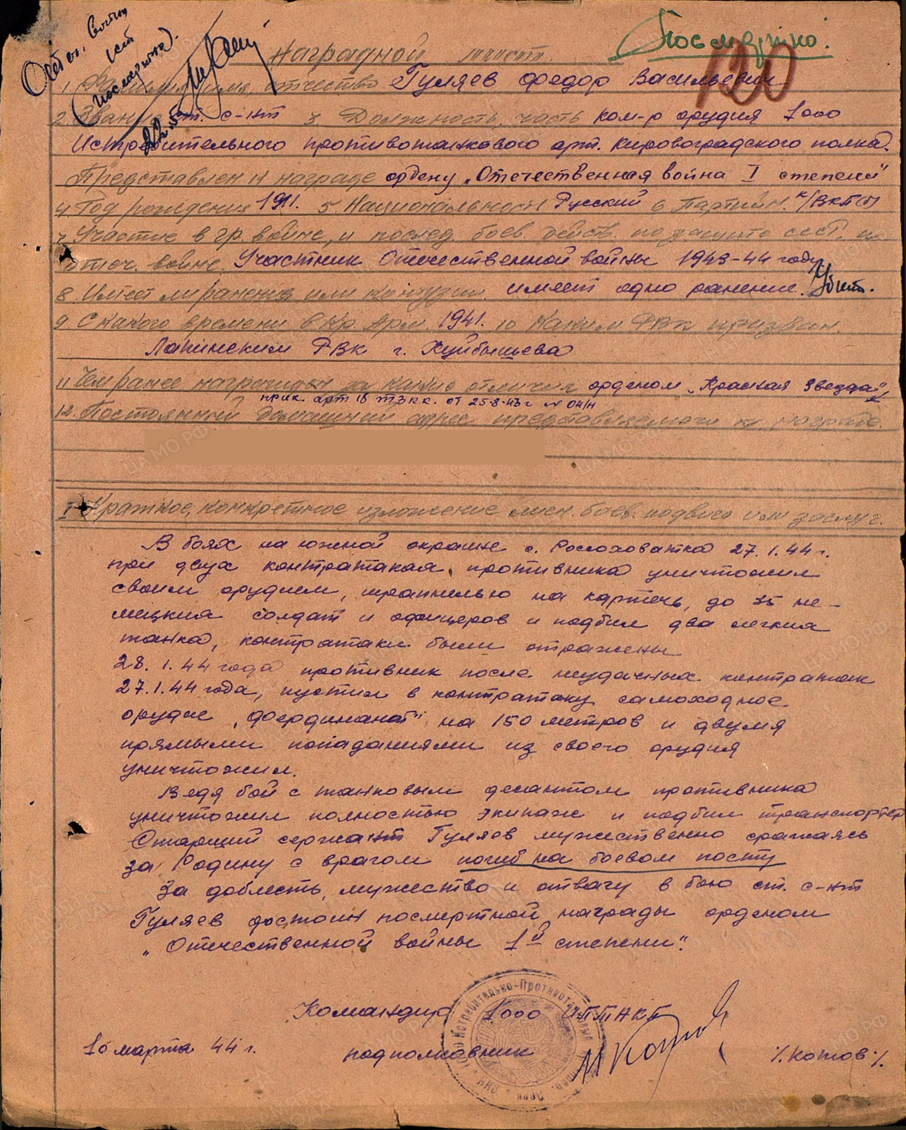 Отеч. войны
I ст.
(Посмертно).
Посмертно.
120
Наградной лист
1. Фамилия, имя, отчество Гуляев Федор Васильевич
2. Звание ст. с-нт 3. Должность, часть ком-р орудия 1000
Истребительного противотанкового арт. Кировоградского полка.
Представлен к награде ордену „Отечественная война I степени"
4 Год рождения 1911. 5 Национальность Русский 6 Партийн. к/ВКП(б)
7 Участие в гр. войне, и послед. боев. действ. по защите СССР, и
отеч. войне. Участник Отечественной войны 1943-44 году
8. Имеет ли ранения или контузии имеет одно ранение. Убит.
9 С какого времени в Кр. Арм. 1941. 10 Каким РВК призван.
РВК г. Куйбышева
11 Чем ранее награжден за какие отличия орденом „Красная Звезда"
прик. арт 18 т3кк. от 25-8-43 г. № 04/н
12. Постоянный домашний адрес представляемого к награде.
I Краткое, конкретное изложение личн. боев. подвига или заслуг.
В боях на южной окраине с. Россоховатка 27.1.44 г.
при двух контратаках противника уничтожил
своим орудием, шрапнелью на картечь, до 35 не-
мецких солдат и офицеров и подбил два легких
танка, контратаки были отражены
28.1.44 года противник после неудачных контратак
27.1.44 года, пустил в контратаку самоходное
орудие „Фердинанд" на 150 метров и двумя
прямыми попаданиями из своего орудия
уничтожил.
Ведя бой с танковым десантом противника
уничтожил полностью экипаж и подбил транспортер
Старший сержант Гуляев мужественно сражаясь
за Родину с врагом погиб на боевом посту
За доблесть, мужество и отвагу в бою ст. с-нт
Гуляев достоин посмертной награды орденом
„Отечественной войны 1й степени".
Командир 1000 ИПТАКП
16 марта 44 г. подполковник /Котов/